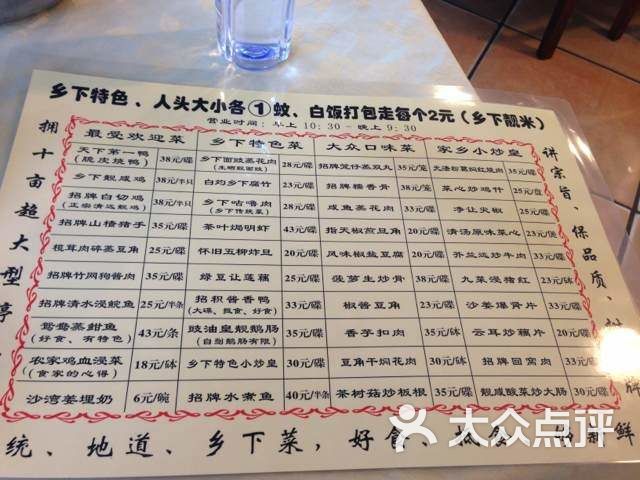 乡下特色、人头大小各①蚊、白饭打包走每个2元（乡下靓米）
营业时间：早上10:30-晚上9:30
拥十亩超大型停
讲宗旨、保品质、
最受欢迎菜 乡下特色菜 大众口味菜 家乡小炒皇
天下第一鸭（脆皮烧鸭） 38元/碟
乡下靓咸鸡 38元/半只
招牌白切鸡（正宗清远靓鸡） 38元/半只
招牌山楂猪手 35元/碟
榄茸肉碎蒸豆角 25元/碟
招牌竹网狗酱肉 35元/碟
招牌清水浸鲩鱼 25元/半条
鸳鸯蒸鲋鱼（好食、有特色） 43元/条
农家鸡血浸菜（食家的心得） 18元/砵
沙湾姜埋奶 6元/碗
乡下面豉蒸花肉 28元/碟
白灼乡下腐竹 23元/碟
乡下咕噜肉（乡下传统菜） 28元/碟
茶叶焗明虾 43元/碟
怀旧五柳炸旦 20元/碟
绿豆让莲藕 25元/碟
招积酱香鸭（大碟、抵食、好食） 33元/碟
豉油皇靓鹅肠（自割鹅肠有限） 35元/碟
乡下特色小炒皇 30元/碟
招牌水煮鱼 40元/半条
招牌笼仔蒸双丸 35元/笼
招牌糯香骨 38元/笼
咸鱼蒸花肉 28元/碟
指天椒煎豆角 20元/碟
风味椒盐豆腐 20元/碟
菠萝生炒骨 38元/碟
椒酱豆角 23元/碟
香芋扣肉 35元/碟
豆角干焖花肉 30元/砵
茶树菇炒板根 35元/碟
35元/碟
菜心炒鸡什 25元/
净让火椒 25元/
清汤原味菜心 23元/煲
芥兰远炒牛肉 33元/碟
九菜浸猪红 20元/砵
沙姜爆肾片 33元/碟
云耳炒藕片 20元/碟
招牌回窝肉 33元/
靓咸酸菜炒大肠 30元/碟
牌
统、地道、乡下菜，好食、 新鲜
大众点评